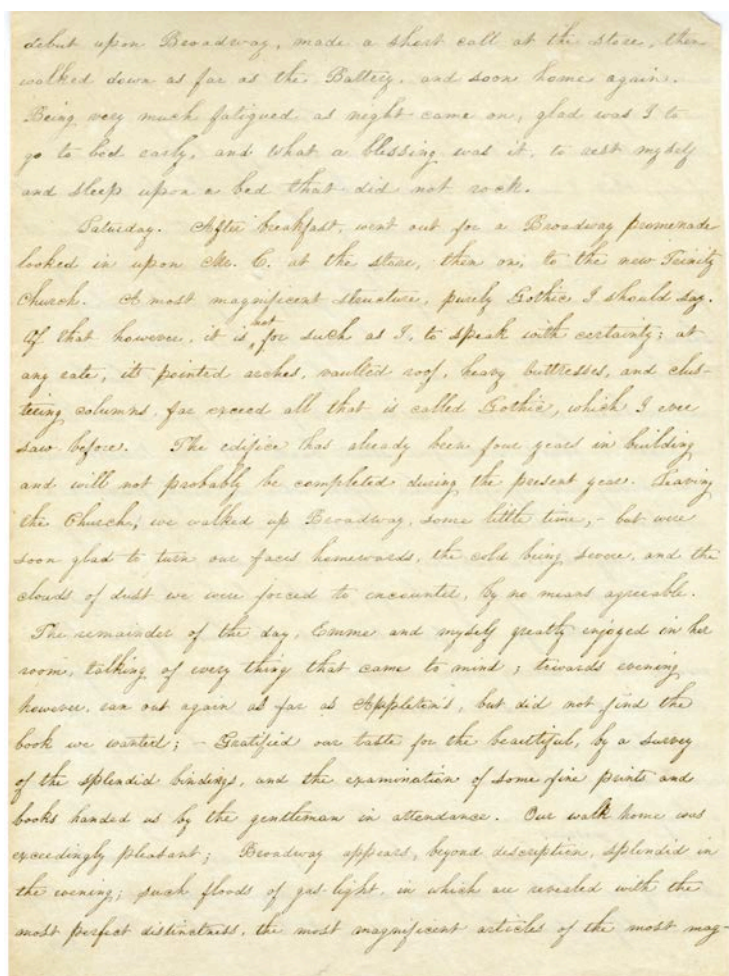 debut upon Broadway, made a short call at the store, then
walked down as far as the Battery, and soon home again.
Being very much fatigued as night came on, glad was I to
go to bed early, and what a blessing was it, to rest myself
and sleep upon a bed that did not rock.
Saturday. After breakfast, went out for a Broadway promenade
looked in upon Mr. C. at the store, then on, to the new Trinity
Church. A most magnificent structure, purely Gothic I should say.
Of that however, it is not for such as I, to speak with certainty; at
any rate, its pointed arches, vaulted roof, heavy buttresses, and clus-
tering columns, far exceed all that is called Gothic, which I ever
saw before. The edifice has already been four years in building
and will not probably be completed during the present year. Leaving
the Church, we walked up Broadway, some little time, - but were
soon glad to turn our faces homewards, the cold being severe, and the
clouds of dust we were forced to encounter, by no means agreeable.
The remainder of the day, Emme and myself greatly enjoyed in her
room, talking of every thing that came to mind; towards evening
however, ran out again as far as Appleton's, but did not find the
book we wanted; - Gratified our taste for the beautiful, by a survey
of the splendid bindings, and the examination of some fine prints and
books handed us by the gentleman in attendance. Our walk home was
exceedingly pleasant; Broadway appears, beyond description, splendid in
the evening; such floods of gas-light, in which are revealed with the
most perfect distinctness, the most magnificent articles of the most mag-